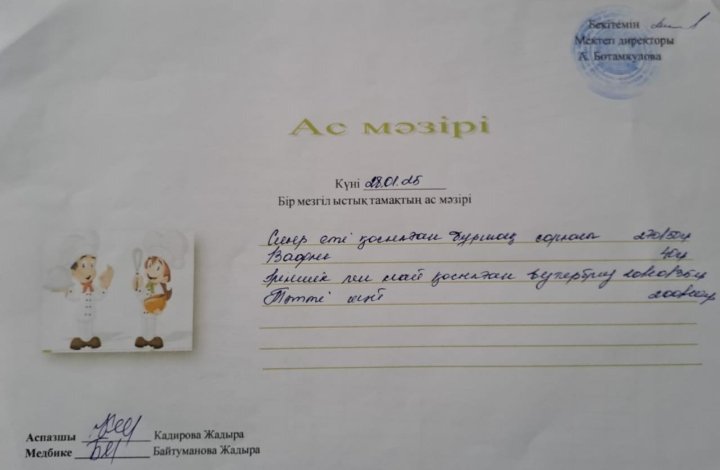 Бекітемін
Мектеп директоры
А. Ботамкулова
Ас мәзірі
Күні 28.01.25
Бір мезгіл ыстық тамақтың ас мәзірі
Сиыр еті қосылған бұршақ сорпасы
Вафли
Ірімшік пен май қосылған бутерброд
Тәтті шәй
Аспазшы Кадирова Жадыра
Медбике Байтуманова Жадыра